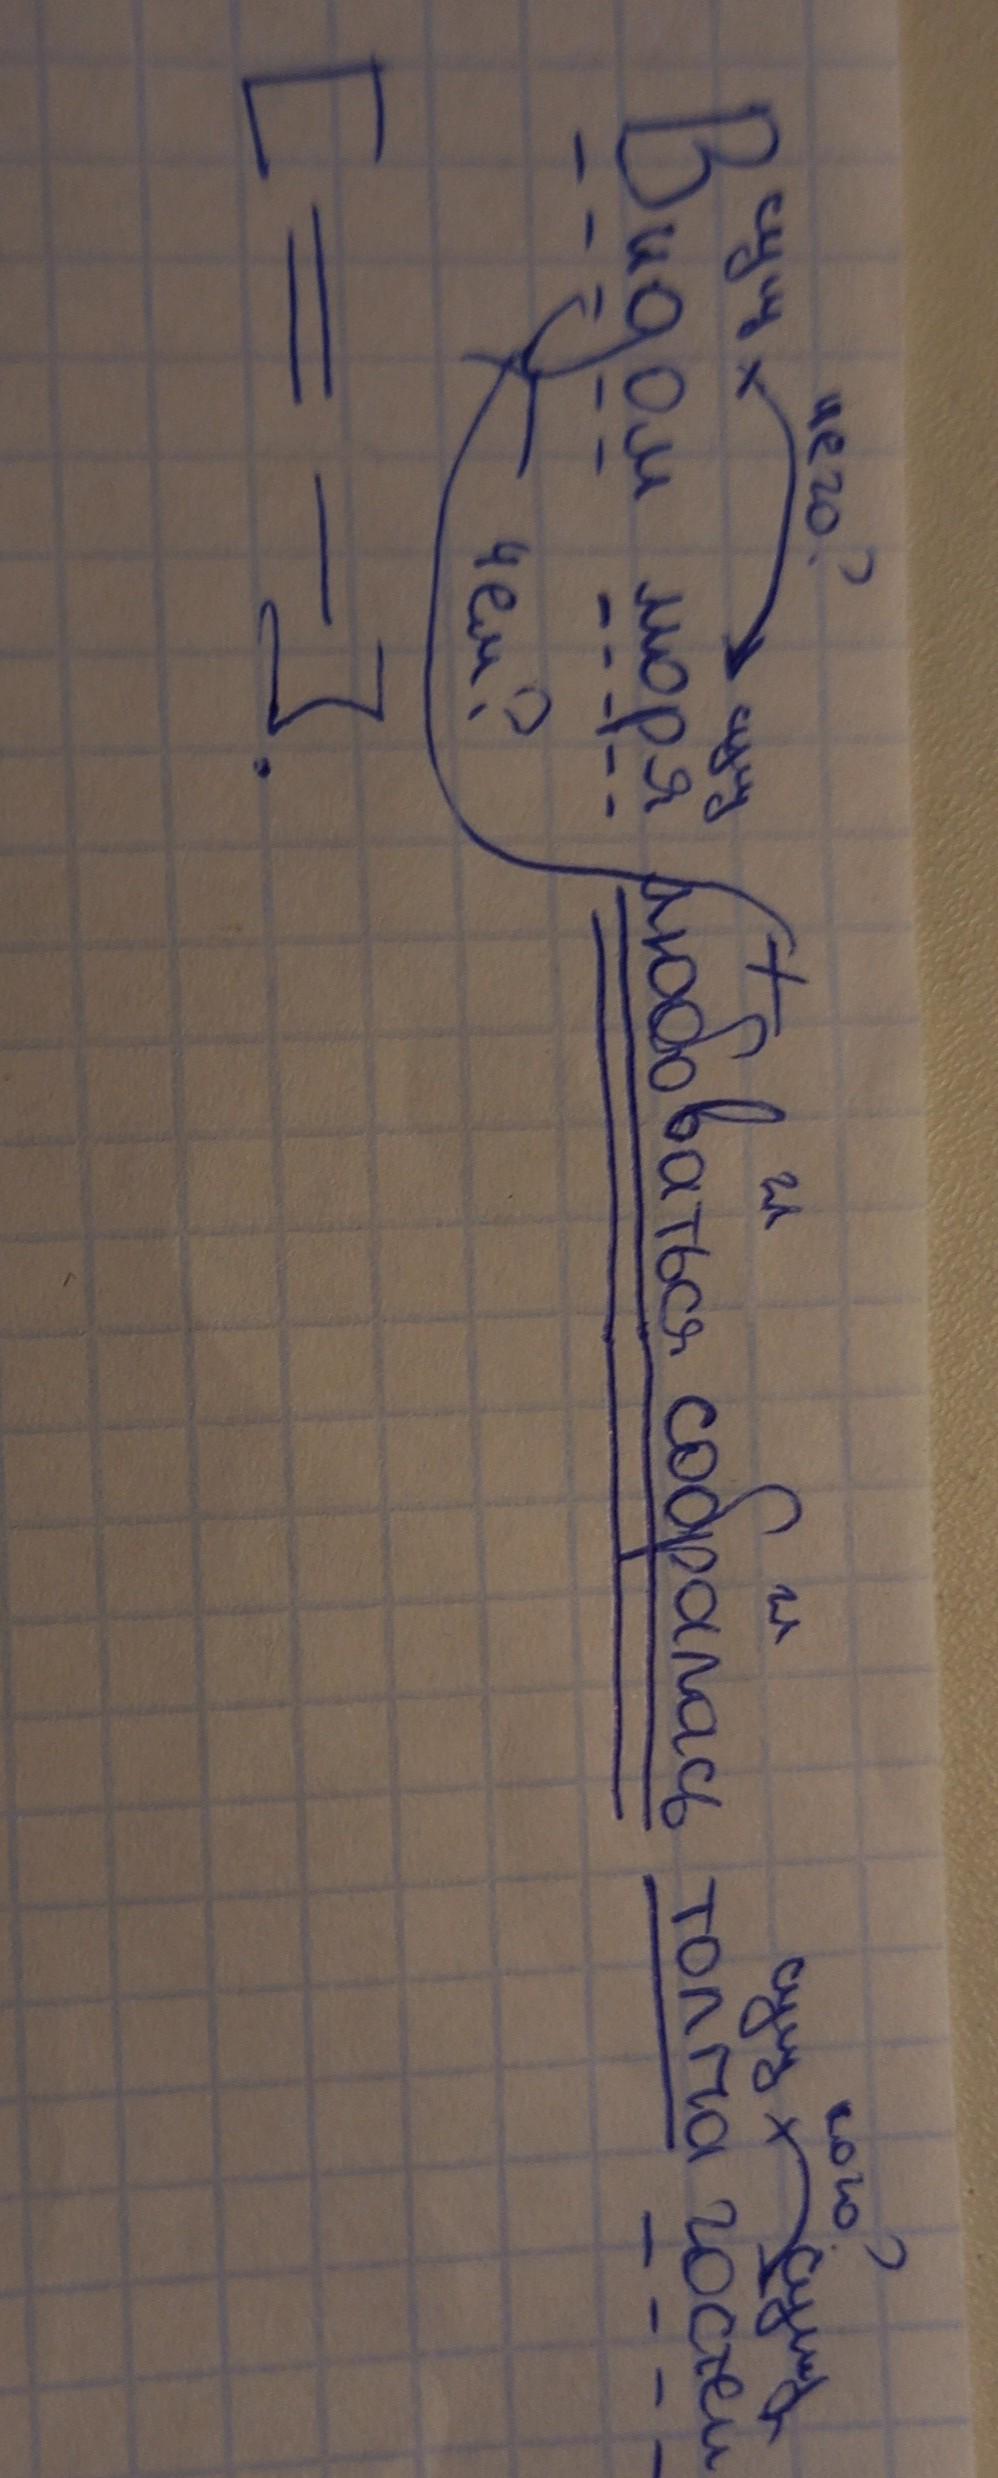 чего? кого?
сущ х сущ х гл гл сущ х сущ
Видом моря любоваться собралась толпа гостей
чем?
[ = – ].